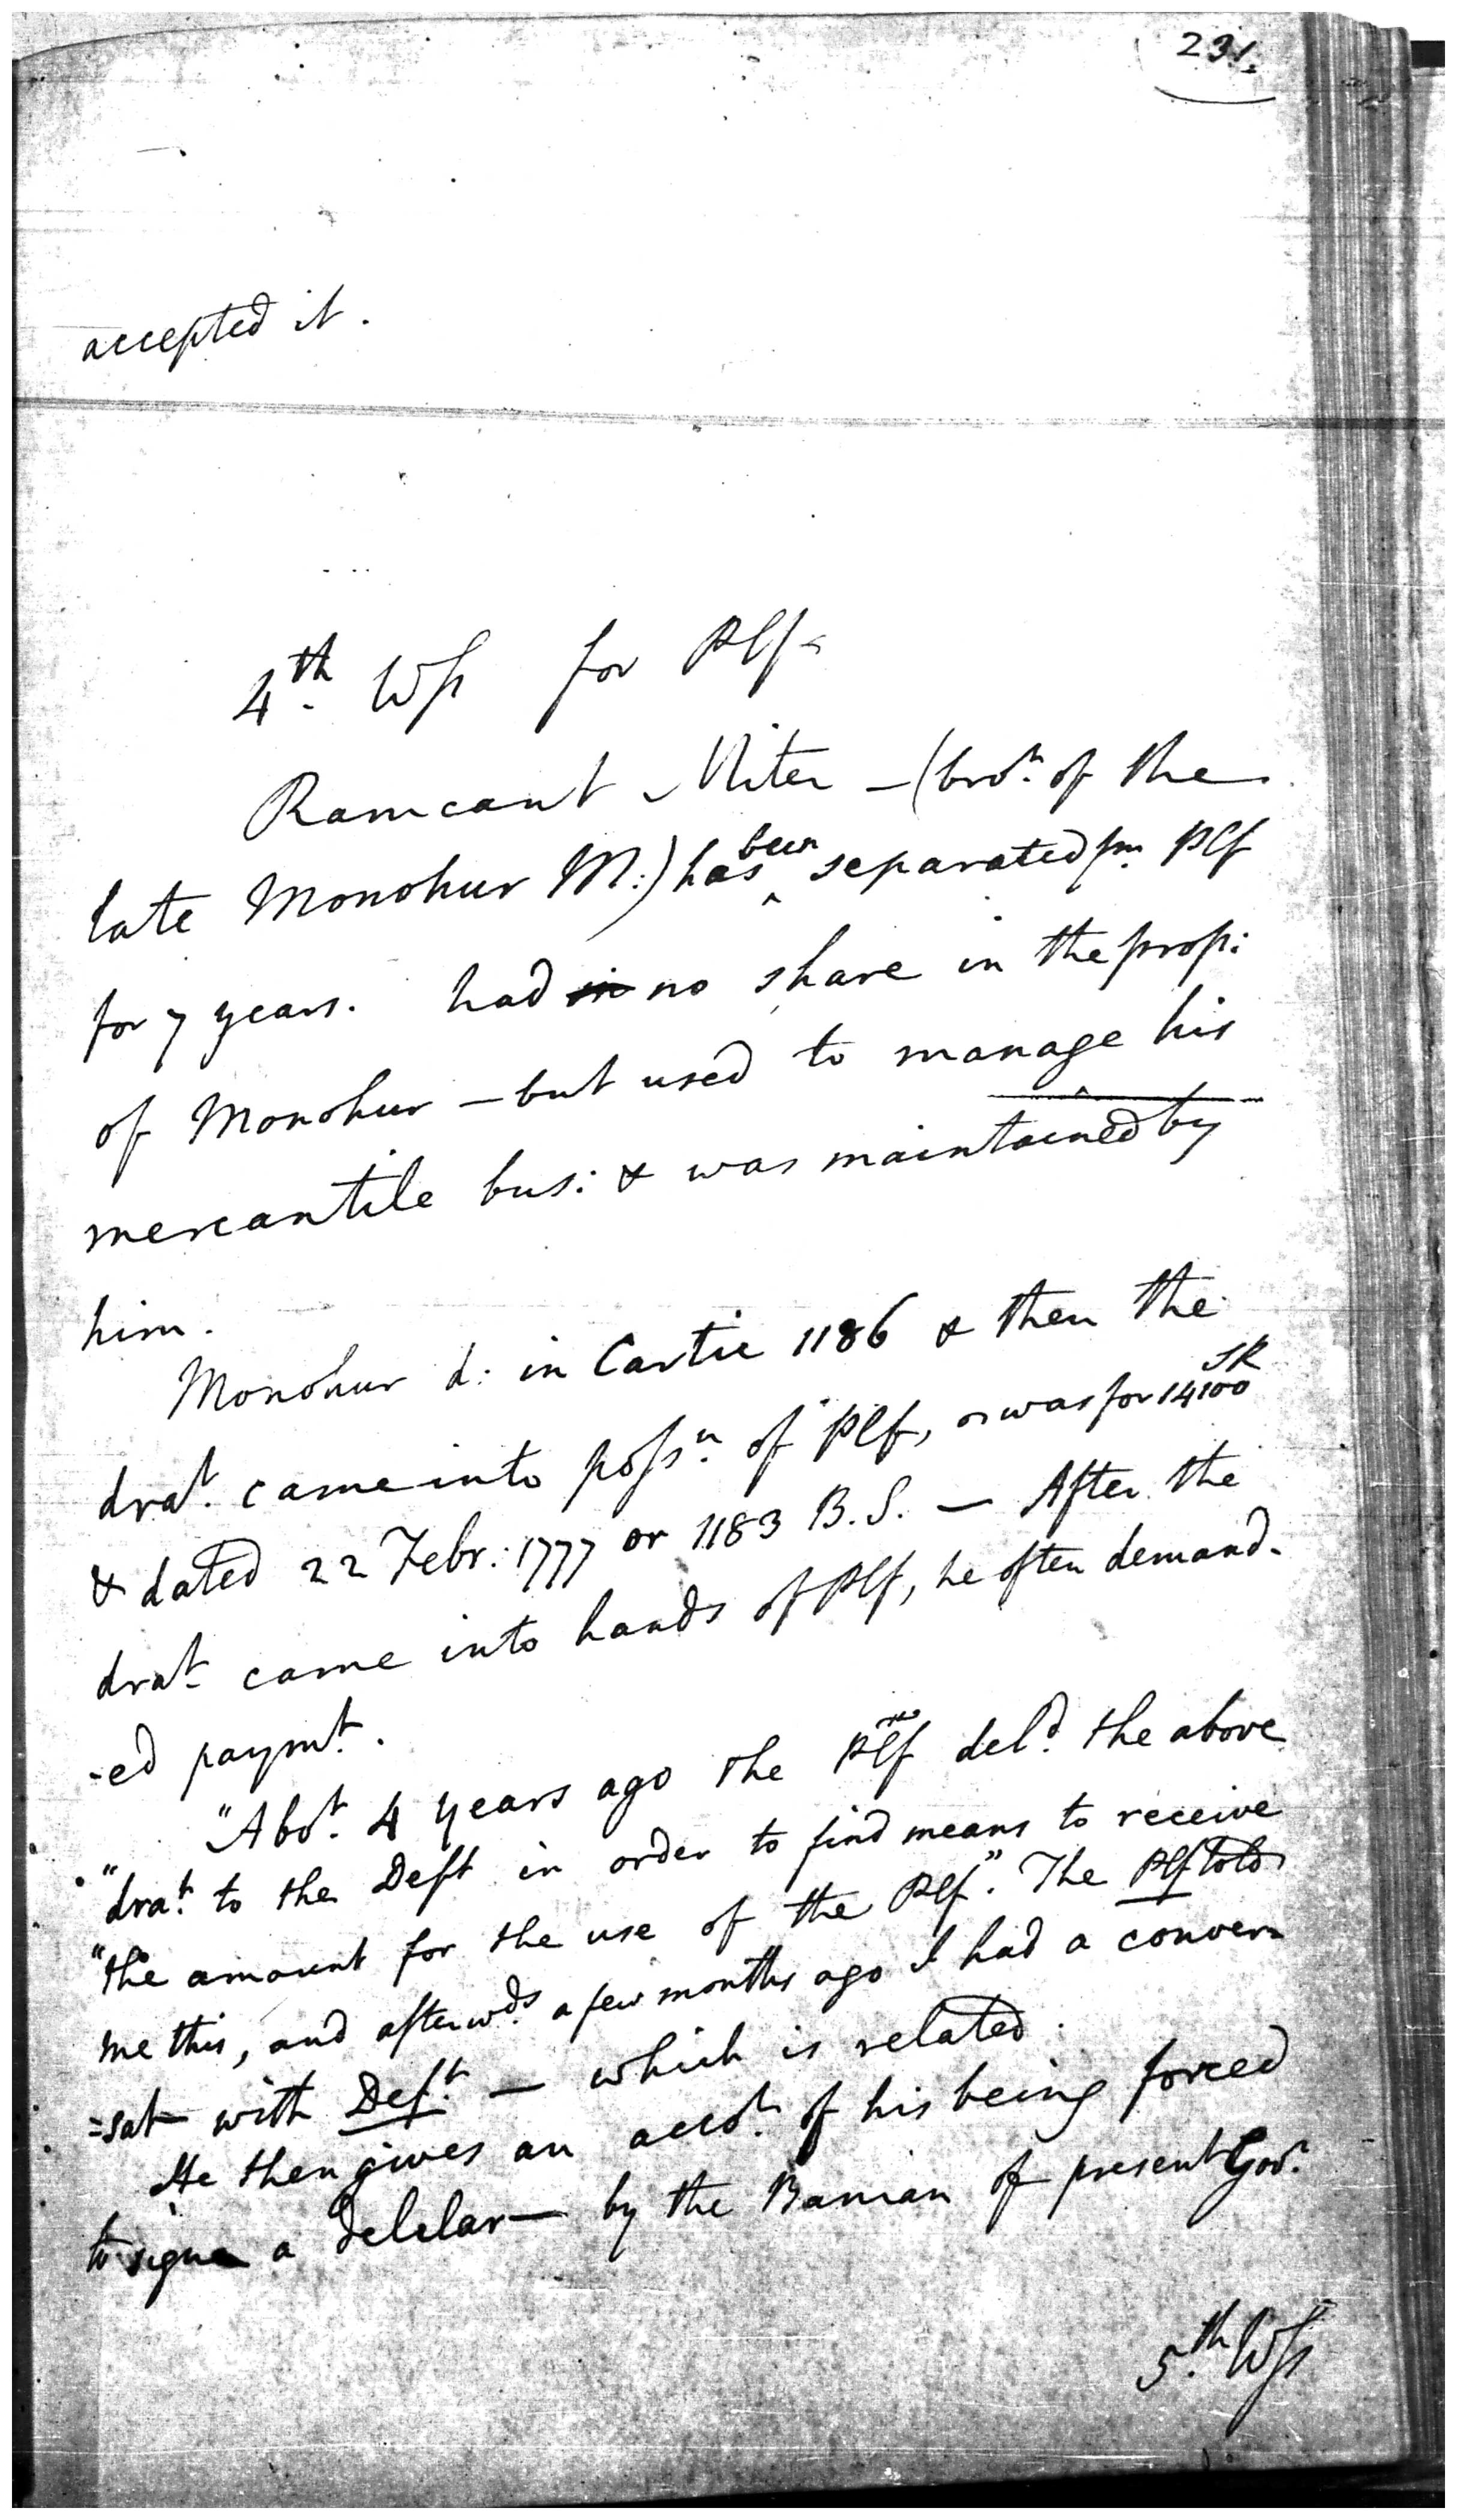 231.
accepted it.
4th Wss for Plf
Ramcant Miter - (bror. of the
late Monohur M:) has been separated fm. Plf
for 7 years. had in no share in the prop:
of Monohur - but used to manage his
mercantile bus: & was maintained by
him.
Monohur d: in Cartic 1186 & then the
drat. came into possn. of Plf, & was for 14100 SR
& dated 22 Febr: 1777 or 1183 B.S. - After the
drat. came into hands of Plf, he often demand-
-ed paymt.
"Abot. 4 years ago the Plf deld. the above
"drat. to the Deft in order to find means to receive
"the amount for the use of the Plf". The Plf told
me this, and afterwds. a few months ago I had a conver
=sat- with Deft. - which is related.
He then gives an accot. of his being forced
to signe a by the Banian of present Gov.
5th Wss